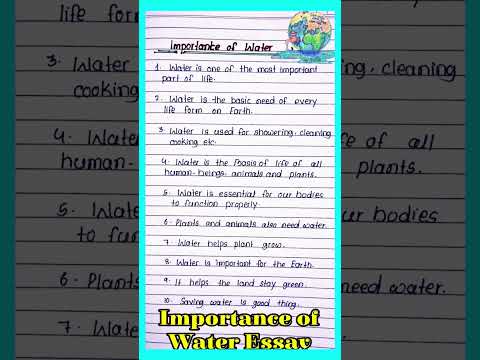 Importance of Water
1. Water is one of the most important
part of life.
2. Water is the basic need of every
life form on Earth.
3. Water is used for showering, cleaning
cooking etc.
4. Water is the Basis of life of all
human-beings, animals and plants.
5. Water is essential for our bodies
to function properly.
6. Plants and animals also need water.
7. Water helps plant grow.
8. Water is important for the Earth.
9. It helps the land stay green.
10. Saving water is good thing.
Importance of
Water Essay
life form
3. Water
cooking
4. Water
human-
5. Water
to func
6. Plants
7. Water
cleaning
of all
plants.
ur bodies
need water.